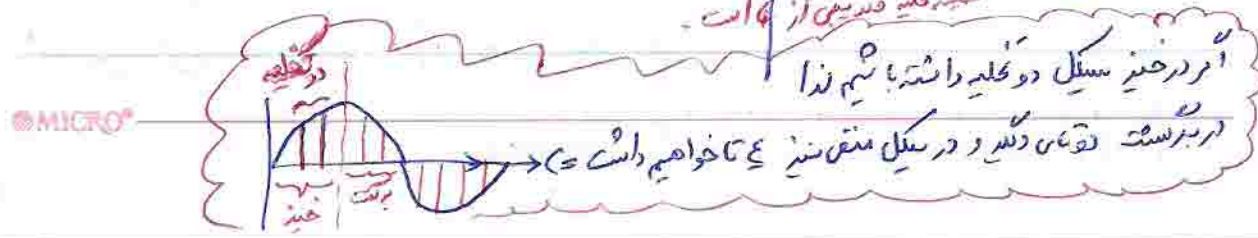 از است.
اگر در خیز سیکل دو تخلیه داشته باشیم لذا
در برگشت دوتای دیگر و در سیکل منفی نیز ۴ تا خواهیم داشت =>
دو تخلیه
خیز
برگشت
MICRO